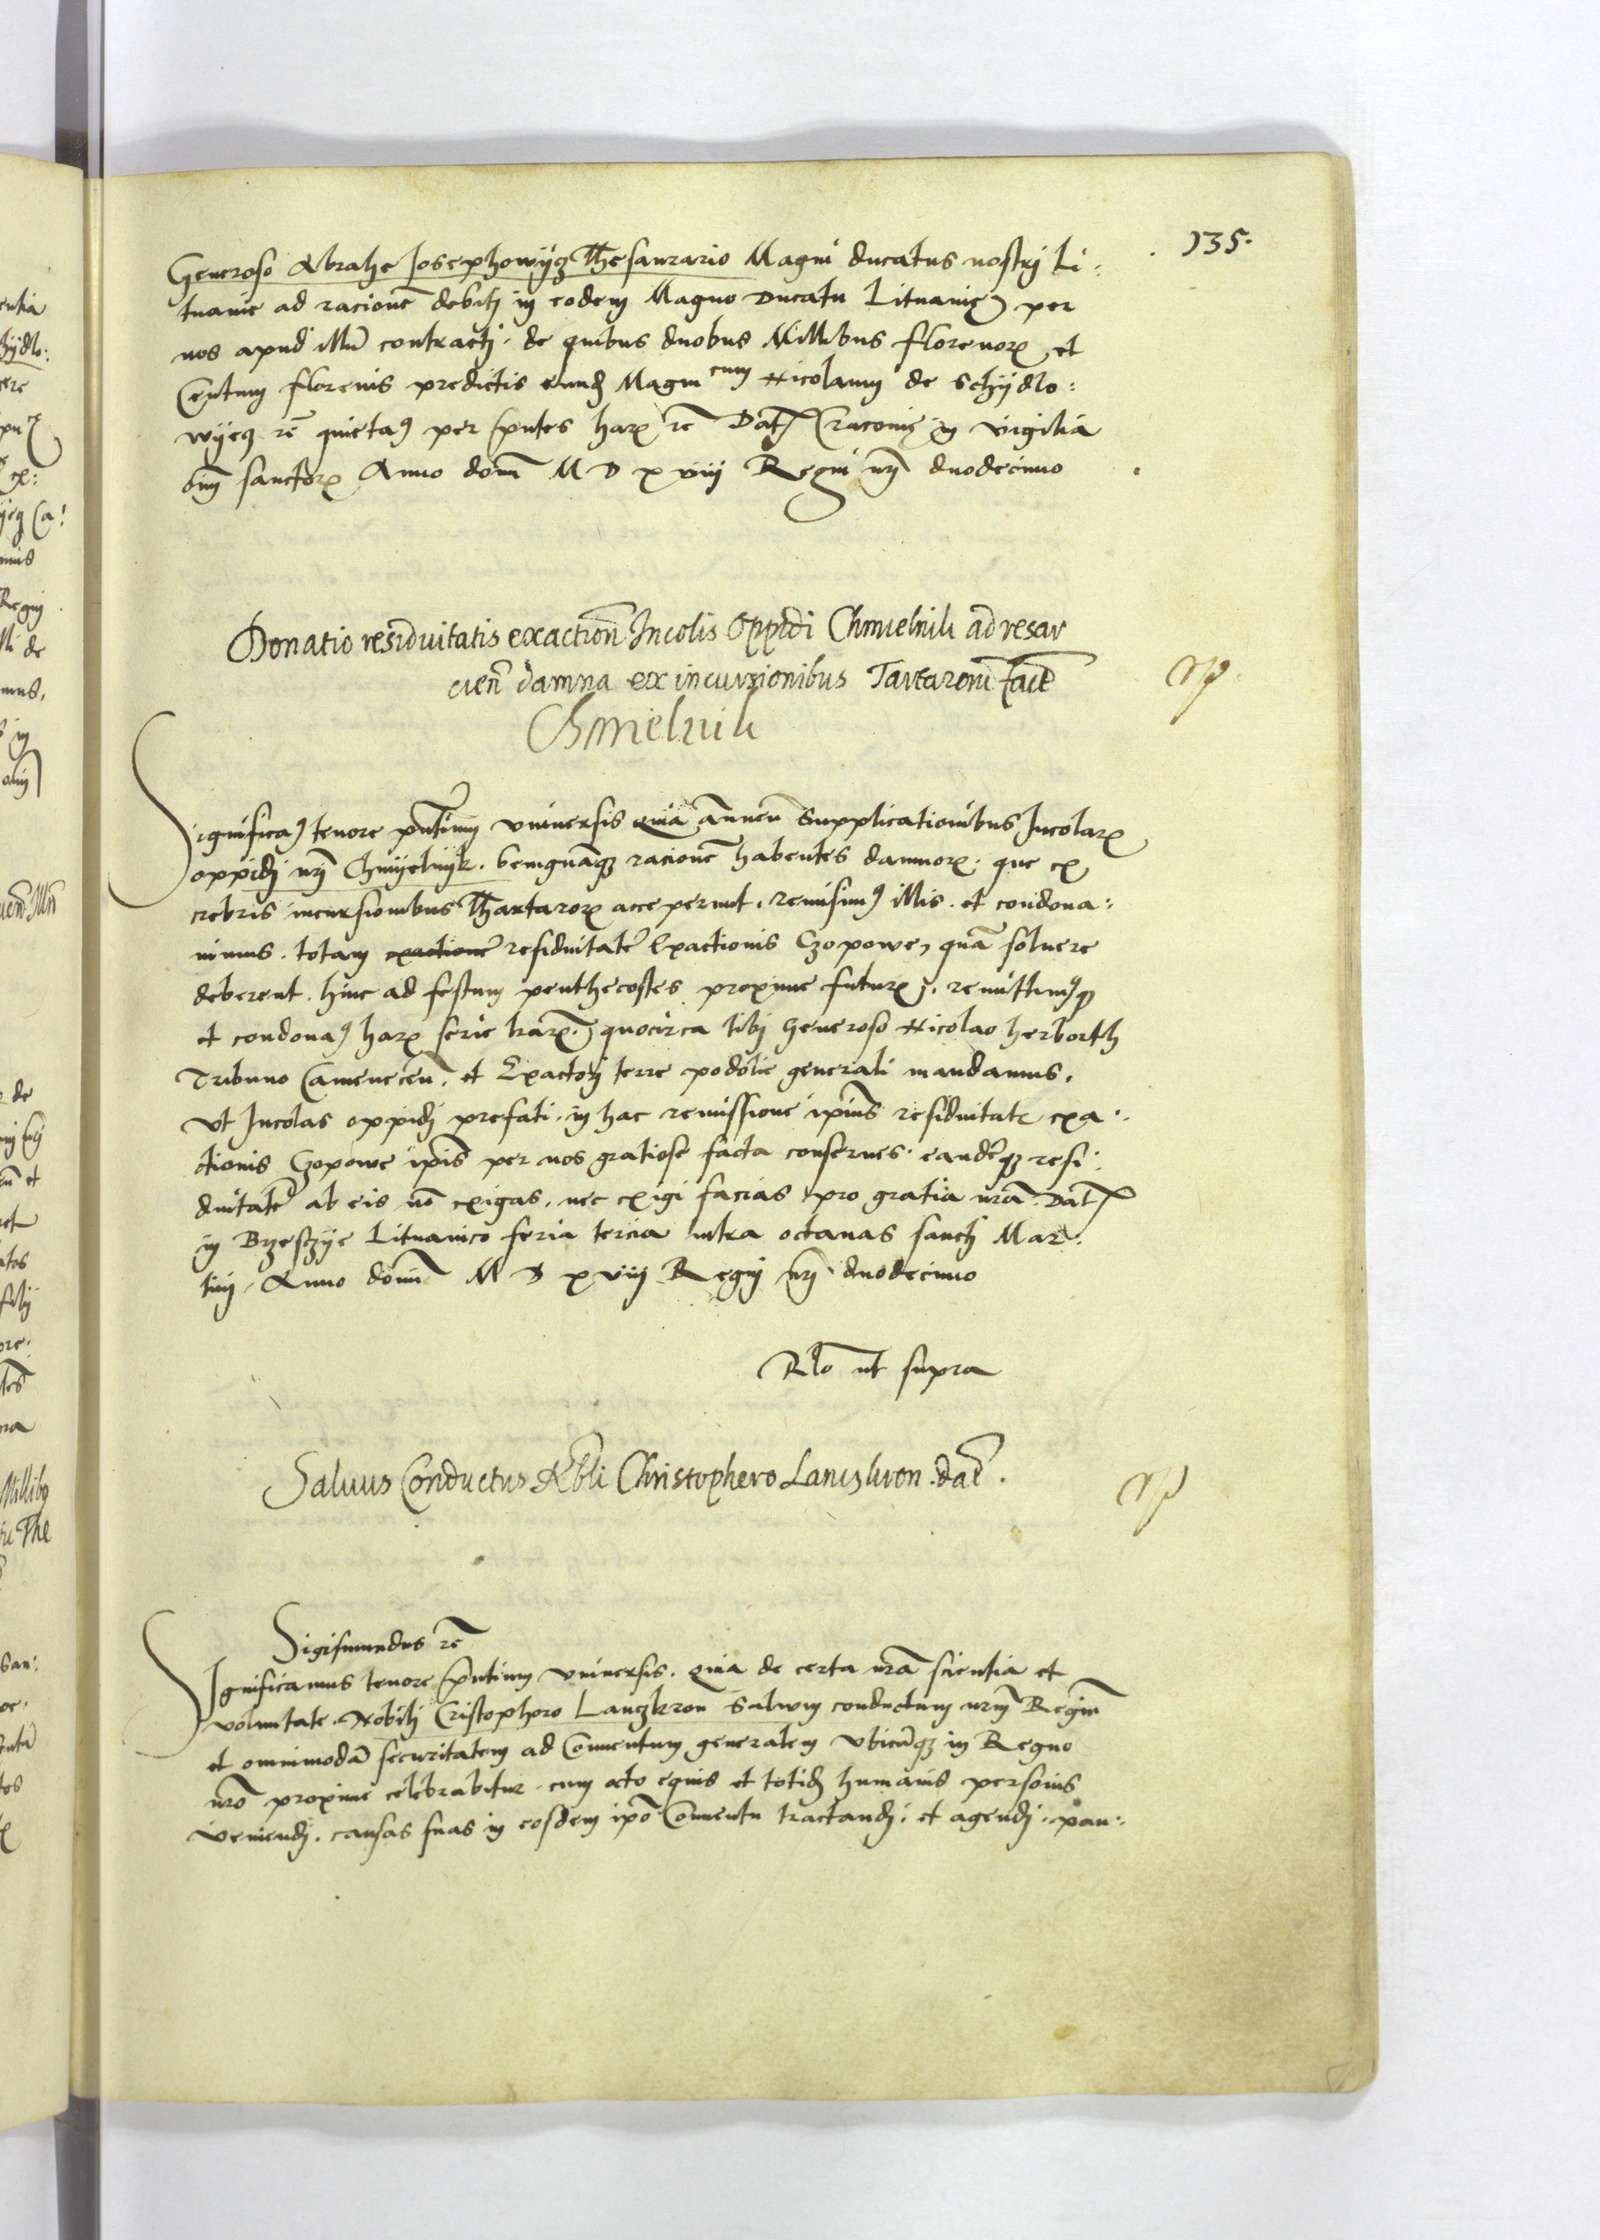 135.
Generoso Abrahe Josephowycz Thesaurario Magni ducatus nostrj Li:
tuanie ad racionem debitj in eodem Magno Ducatu Lituanie per
nos apud illum contractj. de quibus duobus Millibus florenorum et
Centum florenis predictis eund Magnicum Nicolaum de Schydlo:
wyecz rc̄ quietam9 per sp̄ntes harx rc̄ Datx Cracouie in vigilia
om̄ sanctorx Anno dom̄ M D xviij Regni nrj̄ duodecimo
Donatio residuitatis exaction̄ Incolis Oppidi Chmielnik ad resar
cien̄ damna ex incursionibus Tartarorum̄ fact̄
Chmielnik
Significam9 tenore pn̄tium vniuersis quia annuen̄ Supplicationibus Incolarx
oppidj nrj̄ Chmyelnyk. benignamq racionem̄ habentes damnorx. que ex
crebris incursionibus Thartarorx acceperunt. remisim9 illis. et condona:
uimus. totam exactione residuitatē Exactionis Czopowe, quam̄ soluere
deberent. hinc ad festum penthecostes proxime futurx. remittim9q
et condonam9 harx serie lrarx. quocirca tibj Generoso Nicolao herborth
Tribuno Camenecen̄. et Exactorj terre podolie generali mandamus.
Vt Incolas oppidj prefati. in hac remissione ip̄ius residuitatis exa:
ctionis Czopowe ip̄is per nos gratiose facta conserues. eandēq resi:
duitatē ab eis nō exigas. nec exigi facias pro gratia nrā. Datx
in Brzesczye Lituanico feria tercia intra octauas sanctj Mar:
tinj. Anno dom̄ M D xviij Regnj nrj̄ duodecimo
Rlō ut supra
Saluus Conductus Nobli Christophero Lanczkron. dat̄.
Sigismundus rc̄
Significamus tenore sp̄ntium vniuersis. quia de certa nrā scientia et
voluntate. Nobilj Cristophoro Lanczkron Saluum conductum nrm̄ Regiū
et omnimodā securitatem ad Conuentum generalem vbicūq in Regno
nrō proxime celebrabitur. cum octo equis et totid humanis personis
veniendj. causas suas in eosdem ip̄o Conuentu tractandj. et agendj. pau: